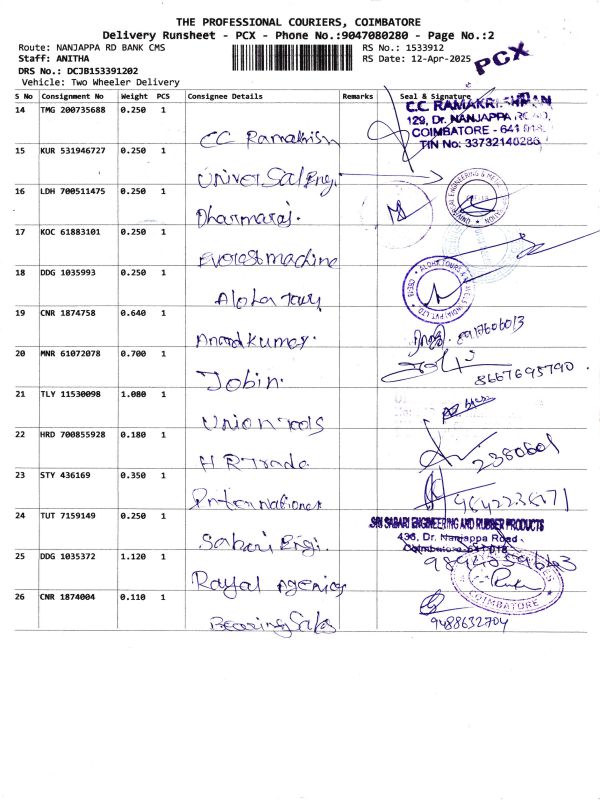 THE PROFESSIONAL COURIERS, COIMBATORE
Delivery Runsheet - PCX - Phone No.:9047080280 - Page No.:2
Route: NANJAPPA RD BANK CMS
RS No.: 1533912
Staff: ANITHA
RS Date: 12-Apr-2025
DRS No.: DCJB153391202
Vehicle: Two Wheeler Delivery
PCX
S No Consignment No Weight PCS Consignee Details Remarks Seal & Signature
14 TMG 200735688 0.250 1
CC Ramakrish
C.C. RAMAKRISHNAN
129, Dr. NANJAPPA ROAD,
COIMBATORE - 641 018.
TIN No: 33732140286
15 KUR 531946727 0.250 1
Universal Eng.
16 LDH 700511475 0.250 1
Dharmaraj.
17 KOC 61883101 0.250 1
Everest machine
18 DDG 1035993 0.250 1
Aloha Tours
19 CNR 1874758 0.640 1
Anandkumar.
8917606013
20 MNR 61072078 0.700 1
Jobin.
8667695790
21 TLY 11530098 1.080 1
Union tools
22 HRD 700855928 0.180 1
H R Trade
2380601
23 STY 436169 0.350 1
International
24 TUT 7159149 0.250 1
Sabari Engi.
SRI SABARI ENGINEERING AND RUBBER PRODUCTS
436, Dr. Nanjappa Road
Coimbatore-641 018
25 DDG 1035372 1.120 1
Royal Agencies
COIMBATORE
26 CNR 1874004 0.110 1
Bearing Sales
9488632704